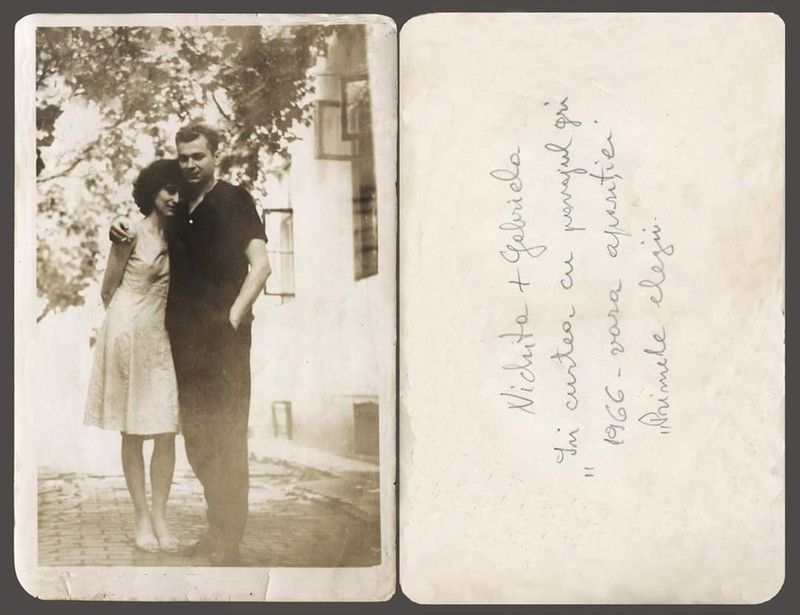 Nichita + Gabriela
În curtea cu pavajul gri
" 1966 - vara apariției
"Primele elegii.